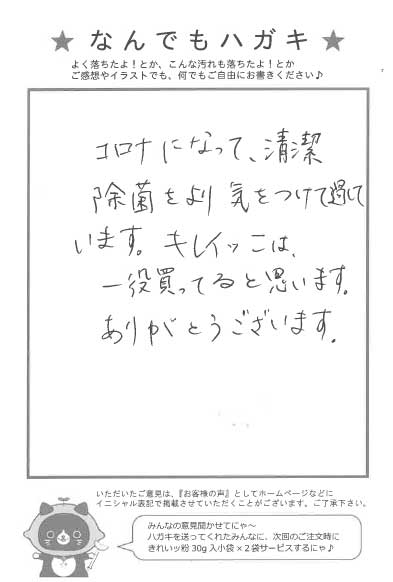 ★ なんでもハガキ ★
よく落ちたよ！とか、こんな汚れも落ちたよ！とか
ご感想やイラストでも、何でもご自由にお書きください♪
コロナになって、清潔
除菌をより気をつけて過して
います。キレイッこは、
一役買ってると思います。
ありがとうございます。
いただいたご意見は、『お客様の声』としてホームページなどに
イニシャル表記で掲載させていただくことがございます。ご了承下さい。
みんなの意見聞かせてにゃ〜
ハガキを送ってくれたみんなに、次回のご注文時に
きれいッ粉 30g 入小袋×2袋サービスするにゃ♪